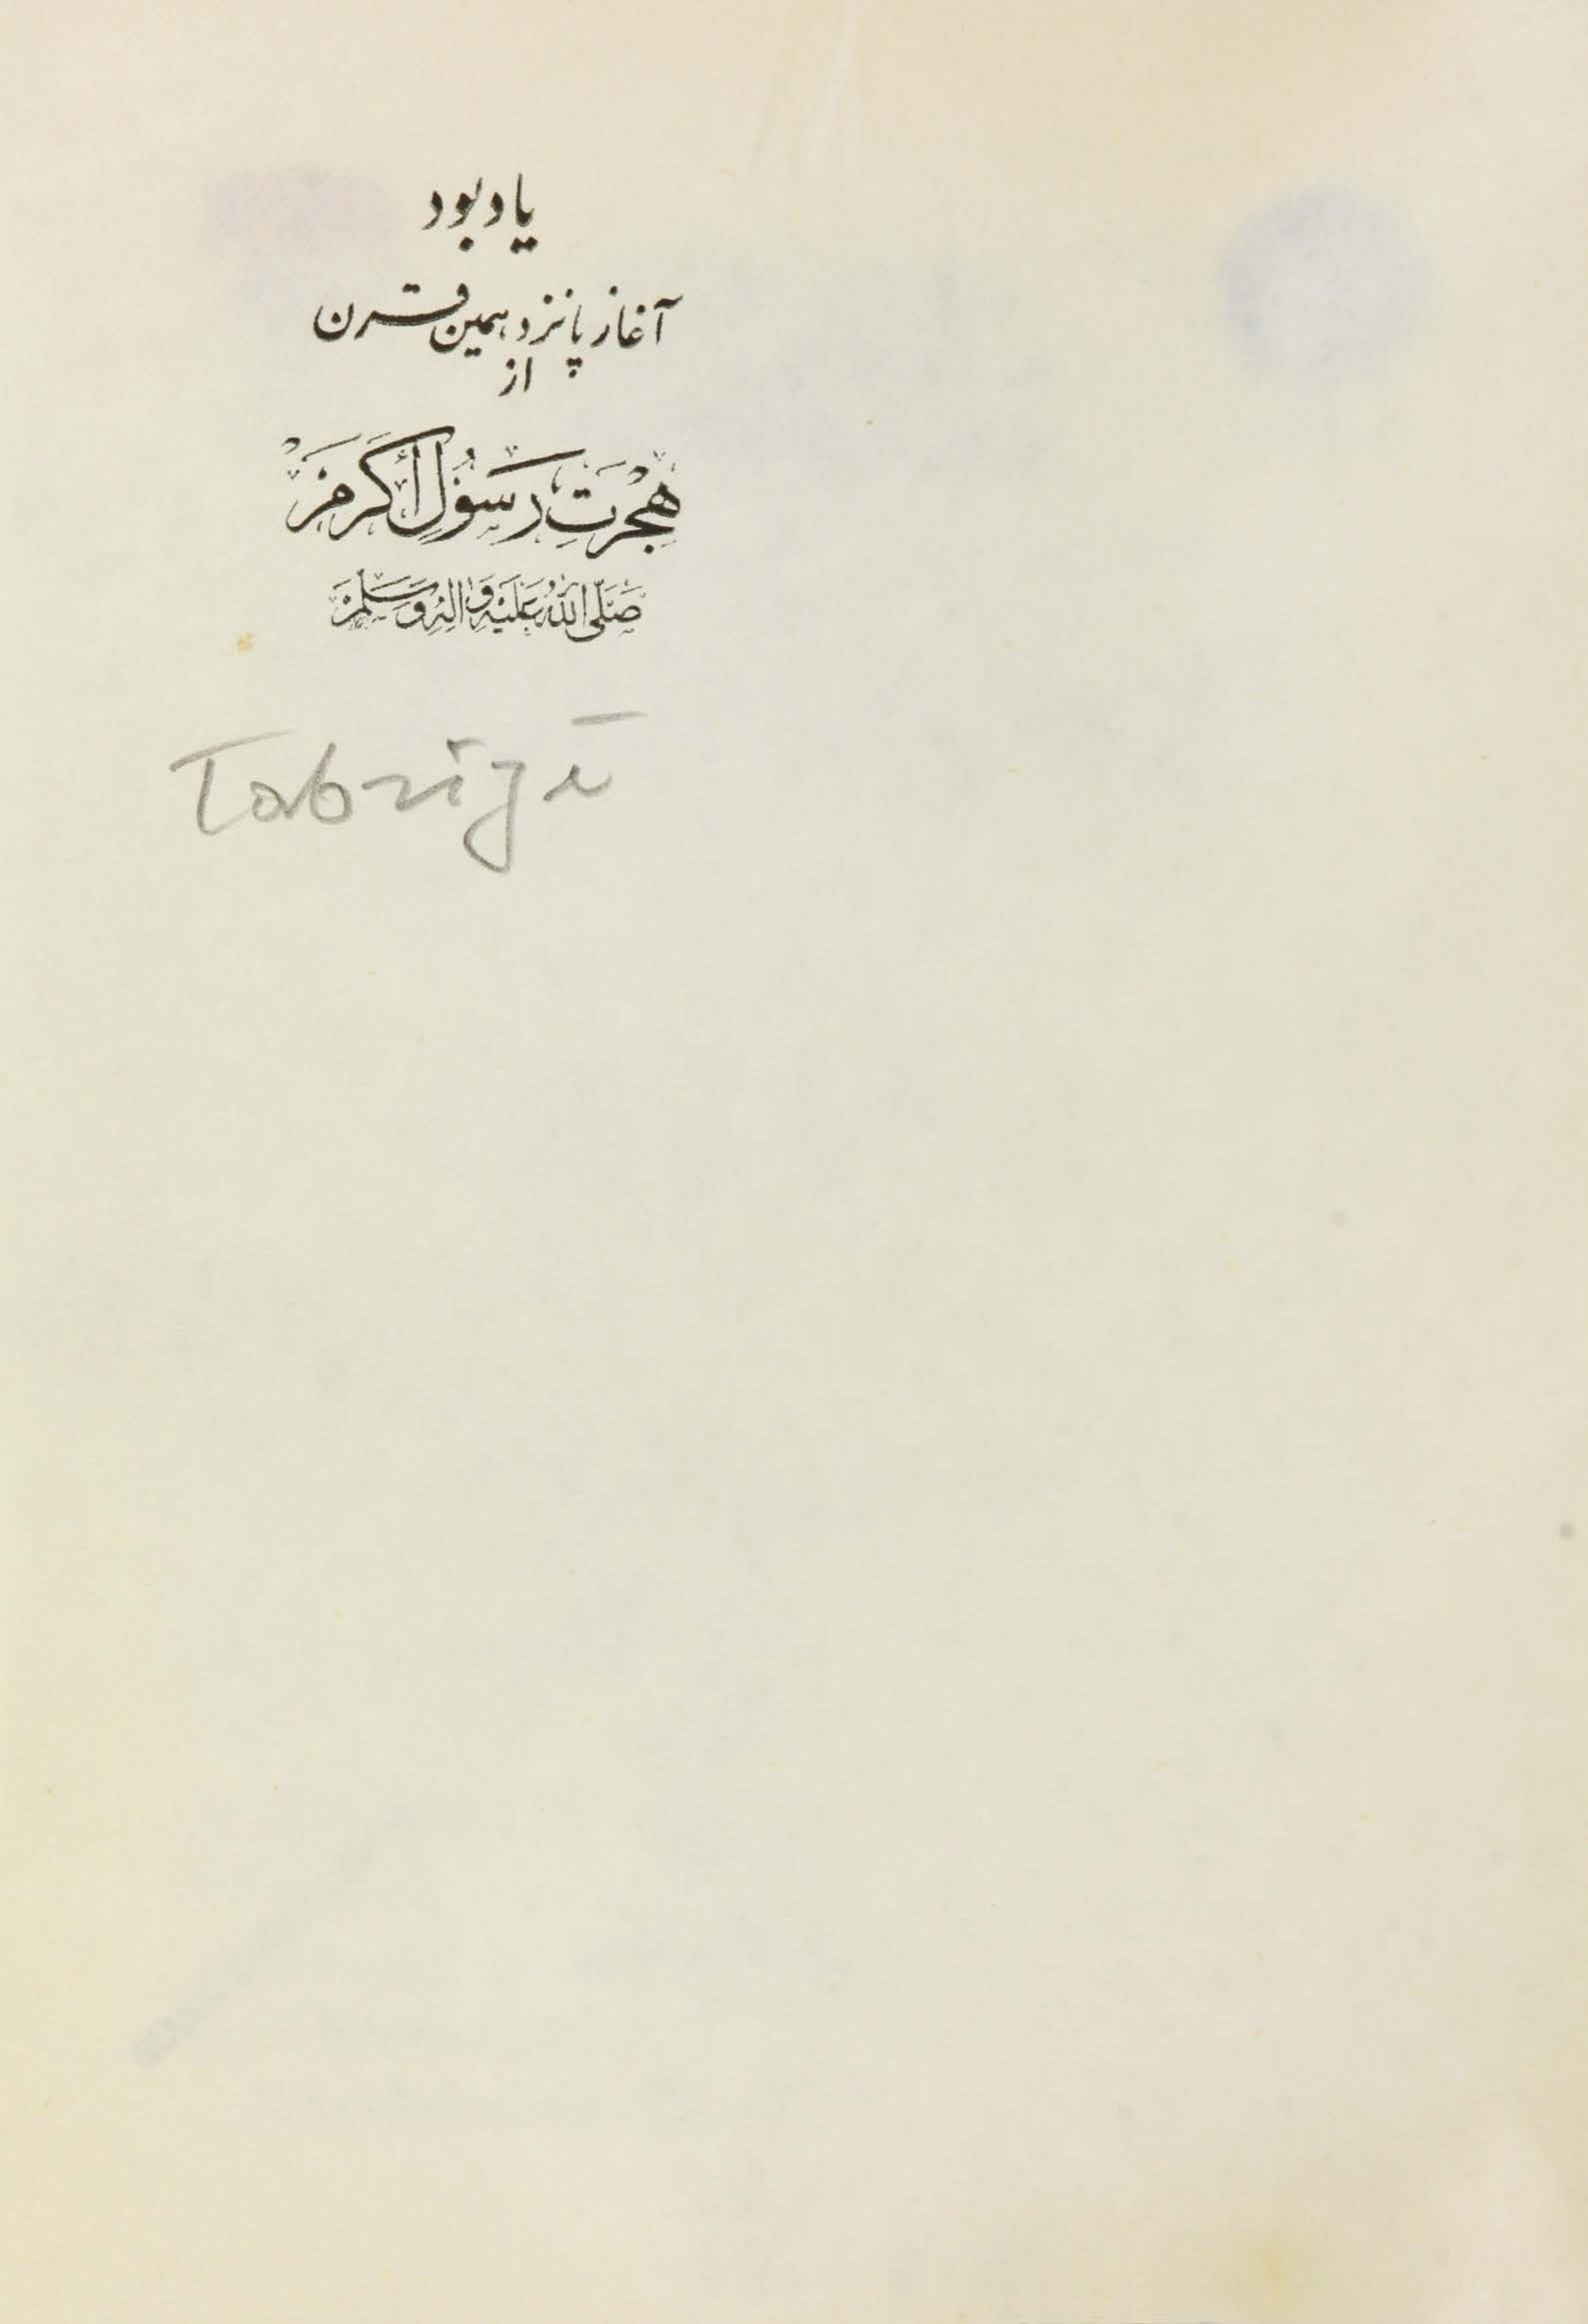 یادبود
آغاز پانزدهمین قرن
از
هِجْرَتِ رَسُولِ أَكْرَمْ
صَلَّى اللهُ عَلَيْهِ وَالِهِ وَسَلَّمَ
Tabrizī